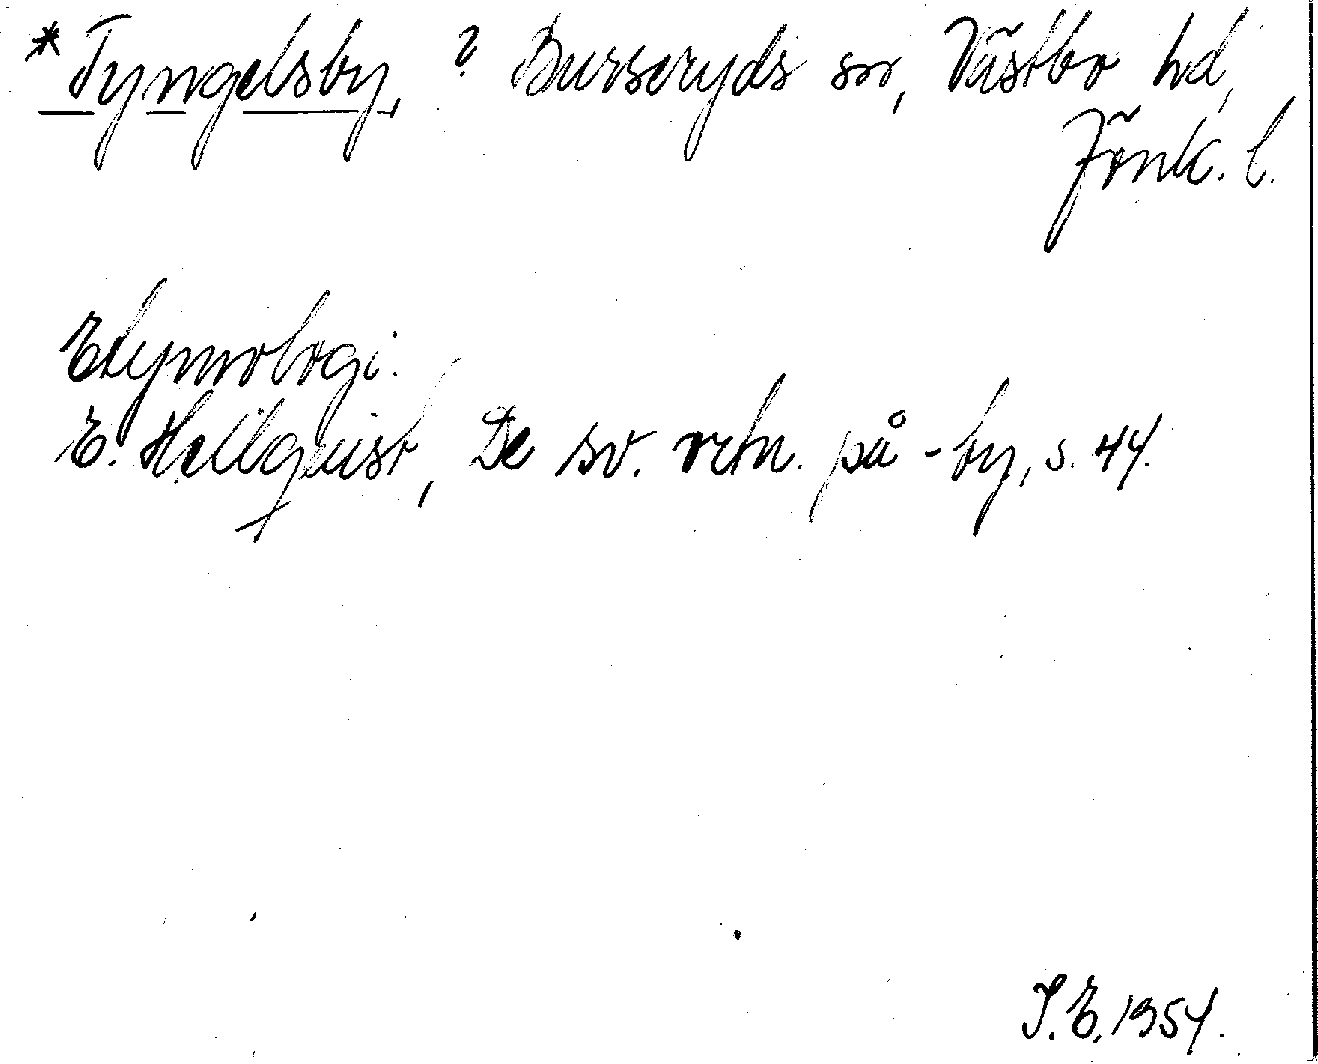 *Tyngelsby, ? Burseryds sn, Västbo hd,
Jönk. l.
Etymologi.
E. Hellquist, De sv. ortn. på -by, s. 44.
1954.